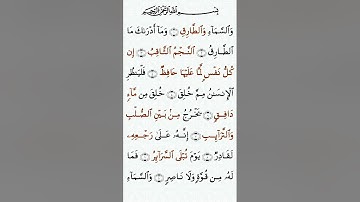 بِسْمِ ٱللَّهِ ٱلرَّحْمَٰنِ ٱلرَّحِيمِ
وَٱلسَّمَآءِ وَٱلطَّارِقِ ۝ وَمَآ أَدْرَىٰكَ مَا
ٱلطَّارِقُ ۝ ٱلنَّجْمُ ٱلثَّاقِبُ ۝ إِن
كُلُّ نَفْسٍ لَّمَّا عَلَيْهَا حَافِظٌ ۝ فَلْيَنظُرِ
ٱلْإِنسَٰنُ مِمَّ خُلِقَ ۝ خُلِقَ مِن مَّآءٍ
دَافِقٍ ۝ يَخْرُجُ مِنۢ بَيْنِ ٱلصُّلْبِ
وَٱلتَّرَآئِبِ ۝ إِنَّهُۥ عَلَىٰ رَجْعِهِۦ
لَقَادِرٌ ۝ يَوْمَ تُبْلَى ٱلسَّرَآئِرُ ۝ فَمَا
لَهُۥ مِن قُوَّةٍ وَلَا نَاصِرٍ ۝ وَٱلسَّمَآءِ